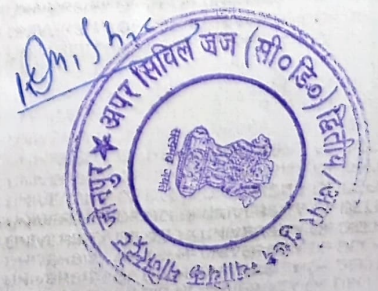 अपर सिविल जज (सी०डि०) द्वितीय / अपर मुख्य न्यायिक मजिस्ट्रेट
जौनपुर
सत्यमेव जयते